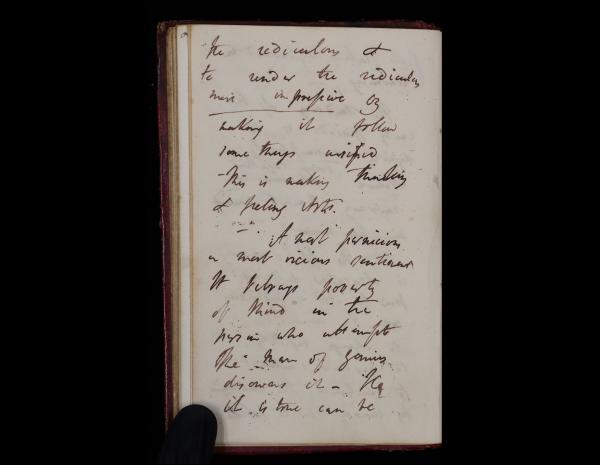 the rediculous &
to render the rediculous
more impressive by
making it follow
some things
This is making thinking
& feeling Arts.
A most pernicious
a most vicious sentiment
It betrays poverty
of Mind in the
person who attempts
The Man of Genius
discovers it - He
it is true can be